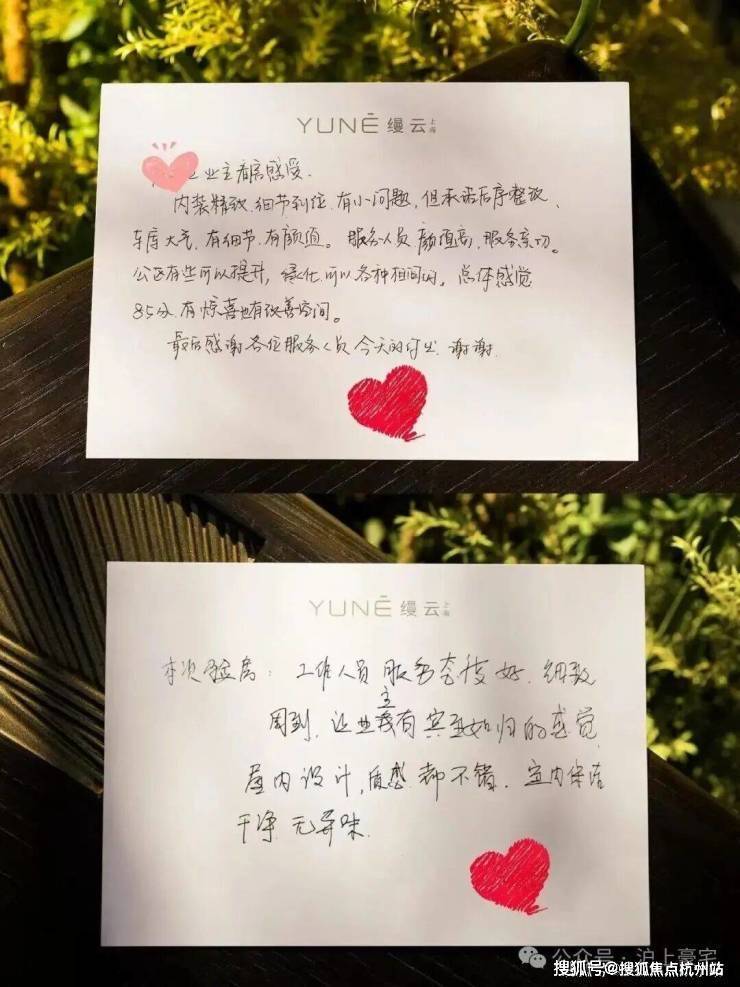 YUNĒ 缦云 上海
业主看房感受.
内装精致.细节到位.有小问题,但承诺后序整改、
车库大气.有细节.有颜值。服务人员颜值高,服务亲切。
公区有些可以提升,绿化可以各种相间的。总体感觉
85分.有惊喜也有改善空间。
最后感谢各位服务人员今天的付出 谢谢.
YUNĒ 缦云 上海
本次验房: 工作人员服务态度好.细致
周到,让业主有宾至如归的感觉
屋内设计,质感都不错.室内保洁
干净 无异味.
公众号·沪上豪宅
搜狐号@搜狐焦点杭州站